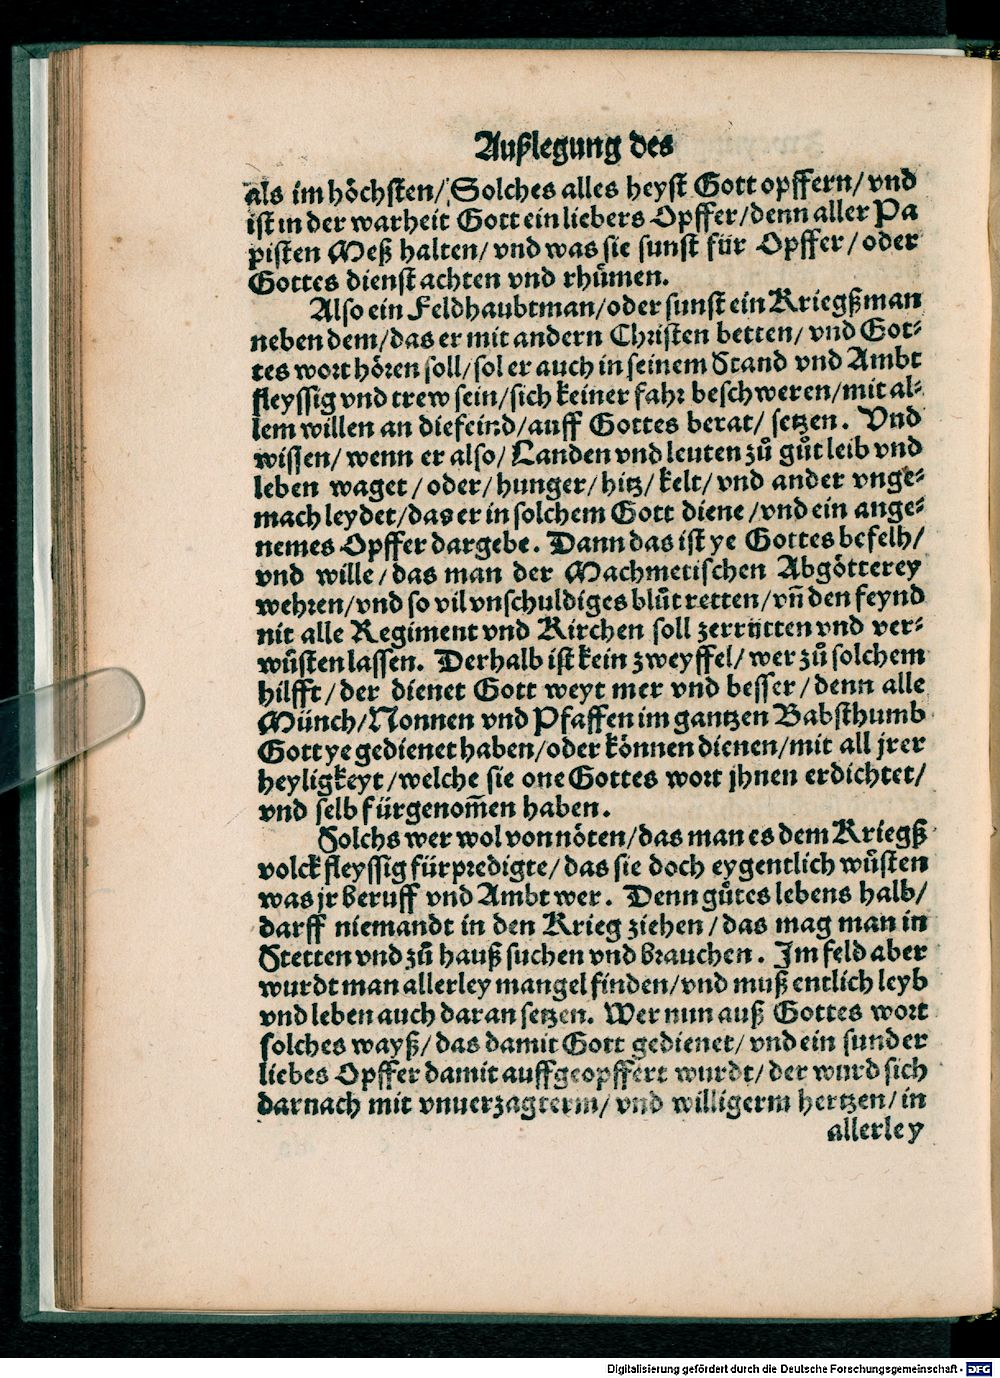 Außlegung des
als im höchsten/ Solches alles heyst Gott opffern/ vnd
ist in der warheit Gott ein liebers Opffer/ denn aller Pa
pisten Meß halten/ vnd was sie sunst für Opffer/ oder
Gottes dienst achten vnd rhümen.
Also ein Feldhaubtman/ oder sunst ein Kriegßman
neben dem/ das er mit andern Christen betten/ vnd Got-
tes wort hören soll/ sol er auch in seinem Stand vnd Ambt
fleyssig vnd trew sein/ sich keiner fahr beschweren/ mit al-
lem willen an die feind/ auff Gottes berat/ setzen. Vnd
wissen/ wenn er also/ Landen vnd leuten zů gůt leib vnd
leben waget/ oder/ hunger/ hitz/ kelt/ vnd ander vnge-
mach leydet/ das er in solchem Gott diene/ vnd ein ange-
nemes Opffer dargebe. Dann das ist ye Gottes befelh/
vnd wille/ das man der Machmetischen Abgötterey
wehren/ vnd so vil vnschuldiges blůt retten/ vn̄ den feynd
nit alle Regiment vnd Kirchen soll zerrütten vnd ver-
wüsten lassen. Derhalb ist kein zweyffel/ wer zů solchem
hilfft/ der dienet Gott weyt mer vnd besser/ denn alle
Münch/ Nonnen vnd Pfaffen im gantzen Babsthumb
Gott ye gedienet haben/ oder können dienen/ mit all jrer
heyligkeyt/ welche sie one Gottes wort jhnen erdichtet/
vnd selb fürgenom̄en haben.
Solchs wer wol von nöten/ das man es dem Kriegß
volck fleyssig fürpredigte/ das sie doch eygentlich wüsten
was jr beruff vnd Ambt wer. Denn gůtes lebens halb/
darff niemandt in den Krieg ziehen/ das mag man in
Stetten vnd zů hauß suchen vnd brauchen. Im feld aber
wurdt man allerley mangel finden/ vnd muß entlich leyb
vnd leben auch daran setzen. Wer nun auß Gottes wort
solches wayß/ das damit Gott gedienet/ vnd ein sunder
liebes Opffer damit auffgeopffert wurdt/ der wurd sich
darnach mit vnuerzagterm/ vnd willigerm hertzen/ in
allerley
Digitalisierung gefördert durch die Deutsche Forschungsgemeinschaft - DFG